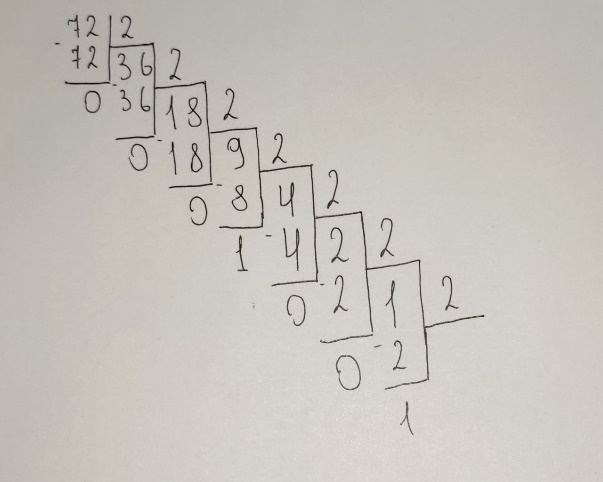 72 2
- 72 36 2
0 - 36 18 2
0 - 18 9 2
0 - 8 4 2
1 - 4 2 2
0 - 2 1 2
0 - 2
1